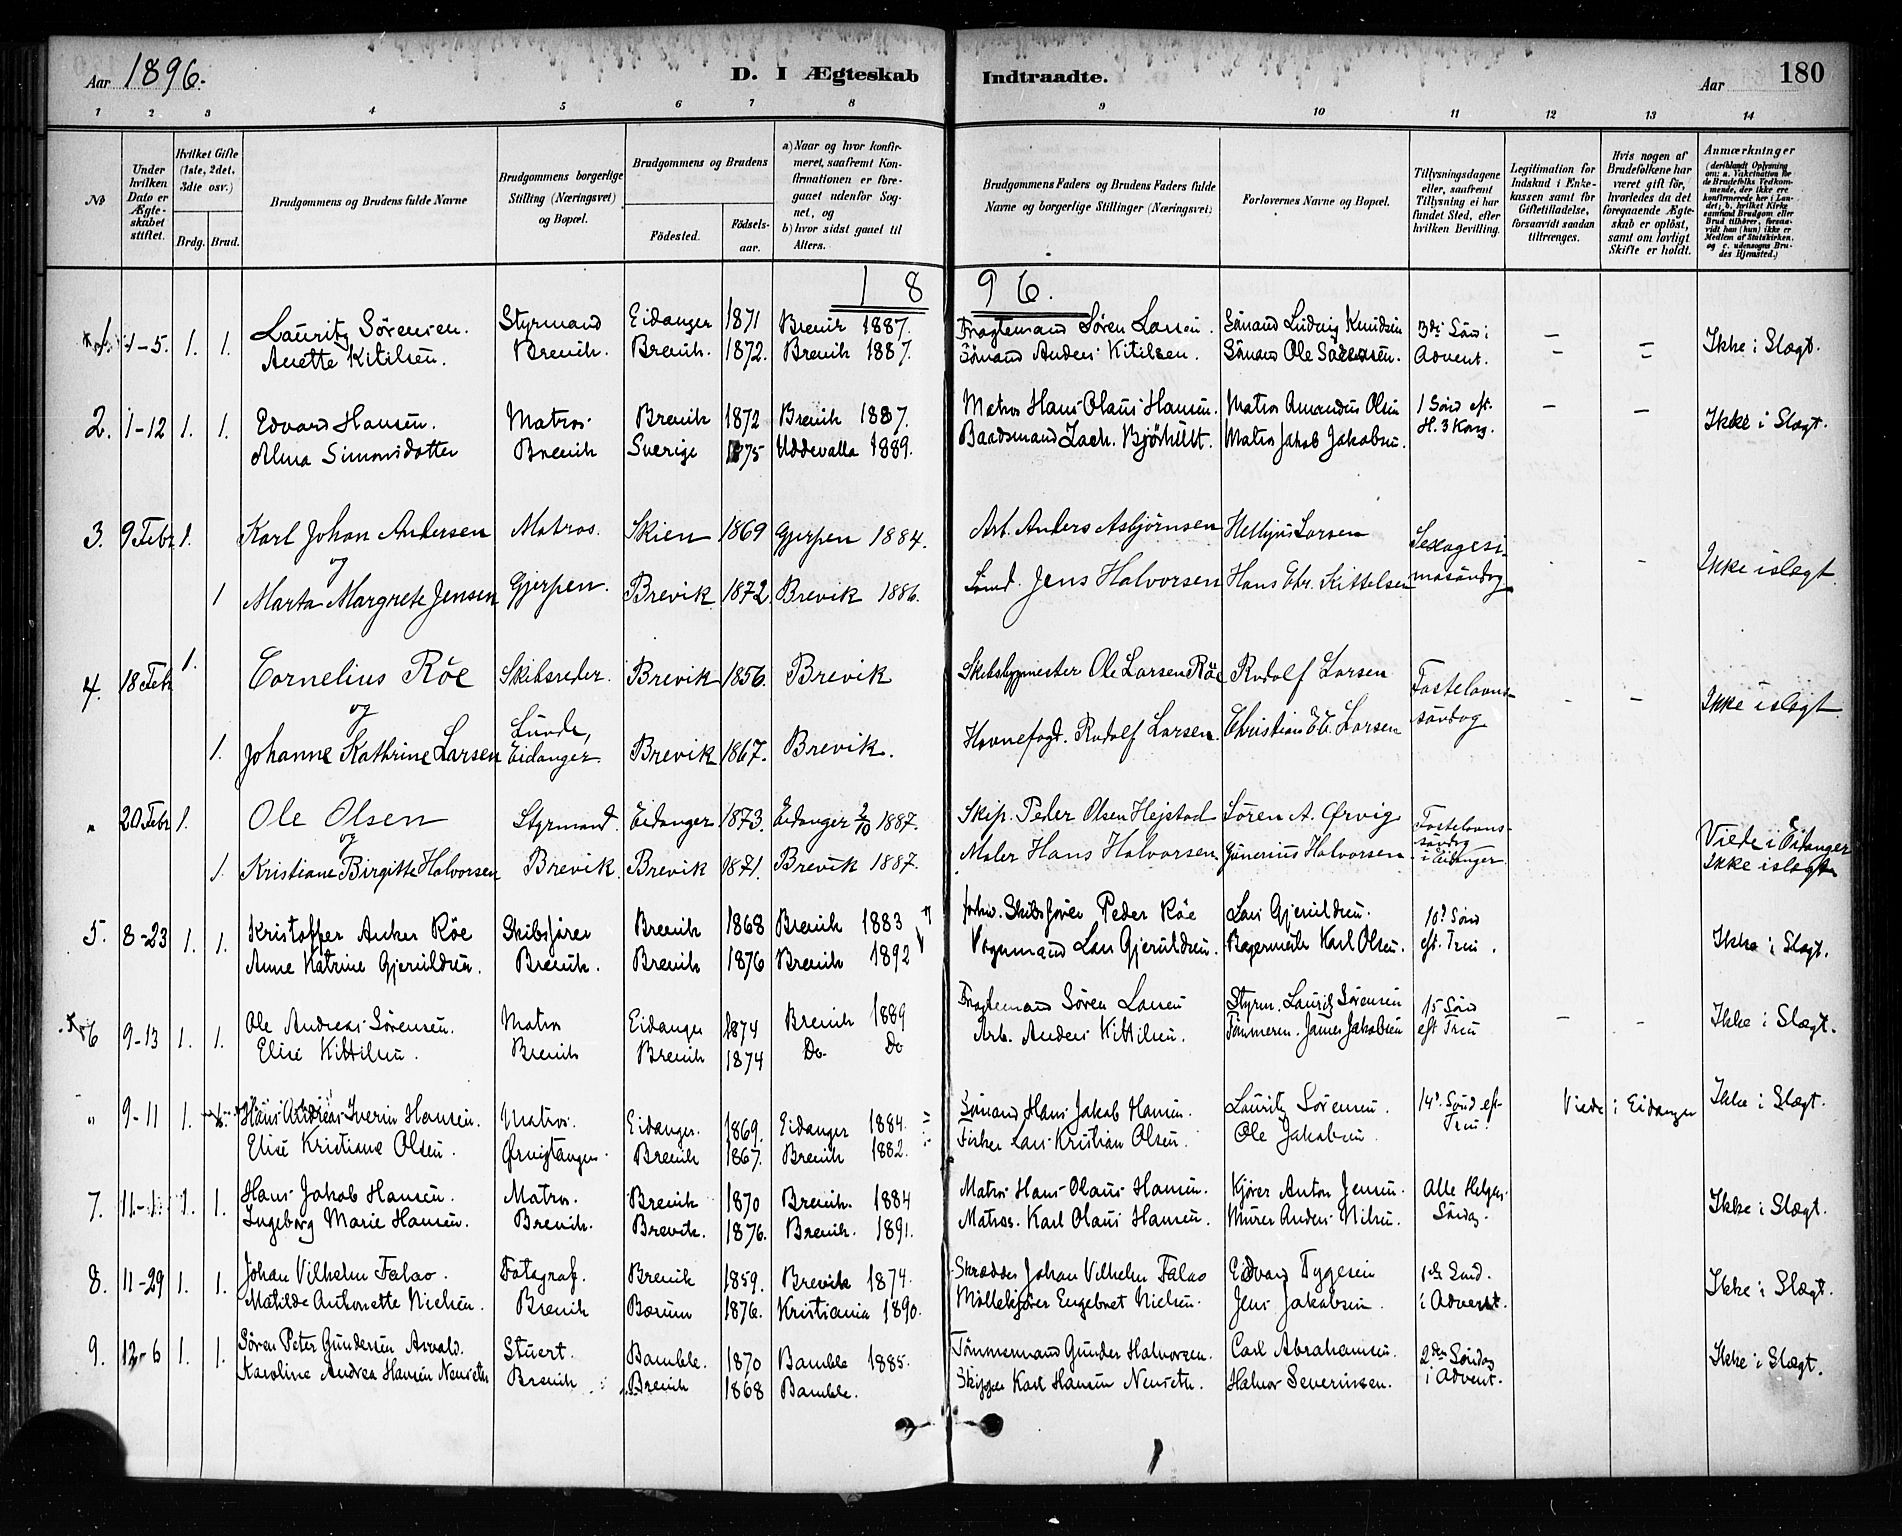 Aar 1896.
D. I Ægteskab Indtraadte.
Aar
180
1 2 3 4 5 6 7 8 9 10 11 12 13 14
No
Under hvilken Dato er Ægteskabet stiftet.
Hvilket Gifte (1ste, 2det, 3die osv.)
Brdg. Brud.
Brudgommens og Brudens fulde Navne
Brudgommens borgerlige Stilling (Næringsvei) og Bopæl.
Brudgommens og Brudens
Fødested.
Fødsels-aar.
a) Naar og hvor konfirmeret, saafremt Konfirmationen er foregaaet udenfor Sognet, og
b) hvor sidst gaaet til Alters.
Brudgommens Faders og Brudens Faders fulde Navne og borgerlige Stillinger (Næringsvei)
Forlovernes Navne og Bopæl.
Tillysningsdagene eller, saafremt Tillysning ei har fundet Sted, efter hvilken Bevilling.
Legitimation for Indskud i Enkekassen samt for Giftetilladelse, forsaavidt saadan tiltrænges.
Hvis nogen af Brudefolkene har været gift før, hvorledes da det foregaaende Ægteskab er opløst, samt om lovligt Skifte er holdt.
Anmærkninger (deriblandt Oplysning om: a. Vakcination for de Brudefolks Vedkommende, der ikke ere konfirmerede her i Landet; b. hvilket Kirkesamfund Brudgom eller Brud tilhører, forsaavidt han (hun) ikke er Medlem af Statskirken, og c. udensogns Brudes Hjemsted.)
1896.
1-5. 1. 1. Lauritz Sørensen. Styrmand Eidanger 1871 Brevik 1887. Fragtemand Søren Larsen. Sömand Ludvig Knudsen 3die Sönd i — — Ikke i Slægt.
Anette Kitilsen. Brevik. Brevik. 1872. Brevik 1887. Sömand Anders Kitilsen. Sömand Ole Sörensen. Advent.
2. 1-12 1. 1. Edvard Hansen. Matros. Brevik 1872 Brevik 1887. Matros Hans Olaus Hansen. Matros Amandus Olsen 1 Sönd eft. — — Ikke i Slægt.
Alma Simonsdatter Brevik Sverige 1875 Uddevalla 1889. Baadsmand Zach. Bjørhült. Matros Jakob Jakobsen. H. 3 Kong.
3. 9 Febr 1. Karl Johan Andersen Matros. Skien 1869 Gjerpen 1884. Arb. Anders Asbjørnsen Larsen Sexagesi- Ikke i slægt.
og
1 Marta Margrete Jensen Gjerpen. Brevik 1872 Brevik 1886. Sömd. Jens Halvorsen Hans Chr. Kittelsen masöndag
4. 18 Feb 1. Cornelius Röe Skibsreder. Brevik 1856. Brevik Skibsbygmester Ole Larsen Röe Rudolf Larsen Fastelavns- Ikke i slægt
og
1. Johanne Kathrine Larsen Lunde, Eidanger. Brevik 1867. Brevik. Havnefogd. Rudolf Larsen. Christian Larsen söndag
" 20 Febr 1. Ole Olsen Styrmand. Eidanger 1873. Eidanger 2/10 1887. Skip. Peder Olsen Hejstad Sören A. Ørvig Fastelavns- Viede i Eidanger
og
1. Kristiane Birgitte Halvorsen Brevik. Brevik 1871. Brevik 1887. Maler Hans Halvorsen Gunerius Halvorsen söndag i Eidanger Ikke i slægt
5. 8-23 1. 1. Kristoffer Anker Röe Skibsfører Brevik 1868 Brevik 1883 Skibsfører Peder Röe Lars Gjeruldsen. 10d Sönd Ikke i Slægt.
Anne Katrine Gjeruldsen. Brevik. Brevik 1876 Brevik 1892 Vognmand Lars Gjeruldsen. Bagermester Karl Olsen. eft. Trin.
6 9-13 1. 1. Ole Andreas Sørensen. Matros Eidanger 1874 Brevik 1889 Fragtemand Søren Larsen Styrm. Lauritz Sørensen 15 Sönd — — Ikke i Slægt.
Elise Kittilsen. Brevik Brevik 1874 Do Do Arb. Anders Kittilsen. Tömmerm. James Jakobsen eft Trin
" 9-11 1. Hans Andreas Iverin Hansen. Matros. Eidanger. 1869. Eidanger 1884. Sömand Hans Jakob Hansen. Lauritz Sørensen. 14d. Sönd eft Viede i Eidanger Ikke i Slægt.
Elise Kristiane Olsen. Ørvigtangen. Brevik 1867. Brevik 1882. Fisker Lars Kristian Olsen. Ole Jakobsen. Trin.
7. 11-1 1. 1. Hans Jakob Hansen. Matros. Brevik 1870 Brevik. 1884 Matros Hans Olaus Hansen. Kjører Anton Jensen. Alle Helgen Ikke i Slægt.
Ingeborg Marie Hansen. Brevik. Brevik. 1876. Brevik. 1891. Matros. Karl Olaus Hansen. Murer Anders Nilsen. Söndag.
8. 11-29 1. 1. Johan Vilhelm Falao. Fotograf. Brevik 1859. Brevik 1874. Skrædder Johan Vilhelm Falao Edvard Tygesen 1ste Sönd. Ikke i Slægt.
Matilde Antonette Nielsen. Brevik Bærum 1876. Kristiania 1890. Möllekjører Engebret Nielsen. Jens Jakobsen. i Advent.
9. 12-6 1. 1. Søren Peter Gundersen Asvald. Stuert. Bamble. 1870 Bamble 1885. Tömmermand Gunder Halvorsen. Carl Abrahamsen. 2den Söndag Ikke i Slægt.
Karoline Andrea Hansen Brevik Brevik 1868 Bamble. Skipper Karl Hansen Halvor Severinsen. i Advent.